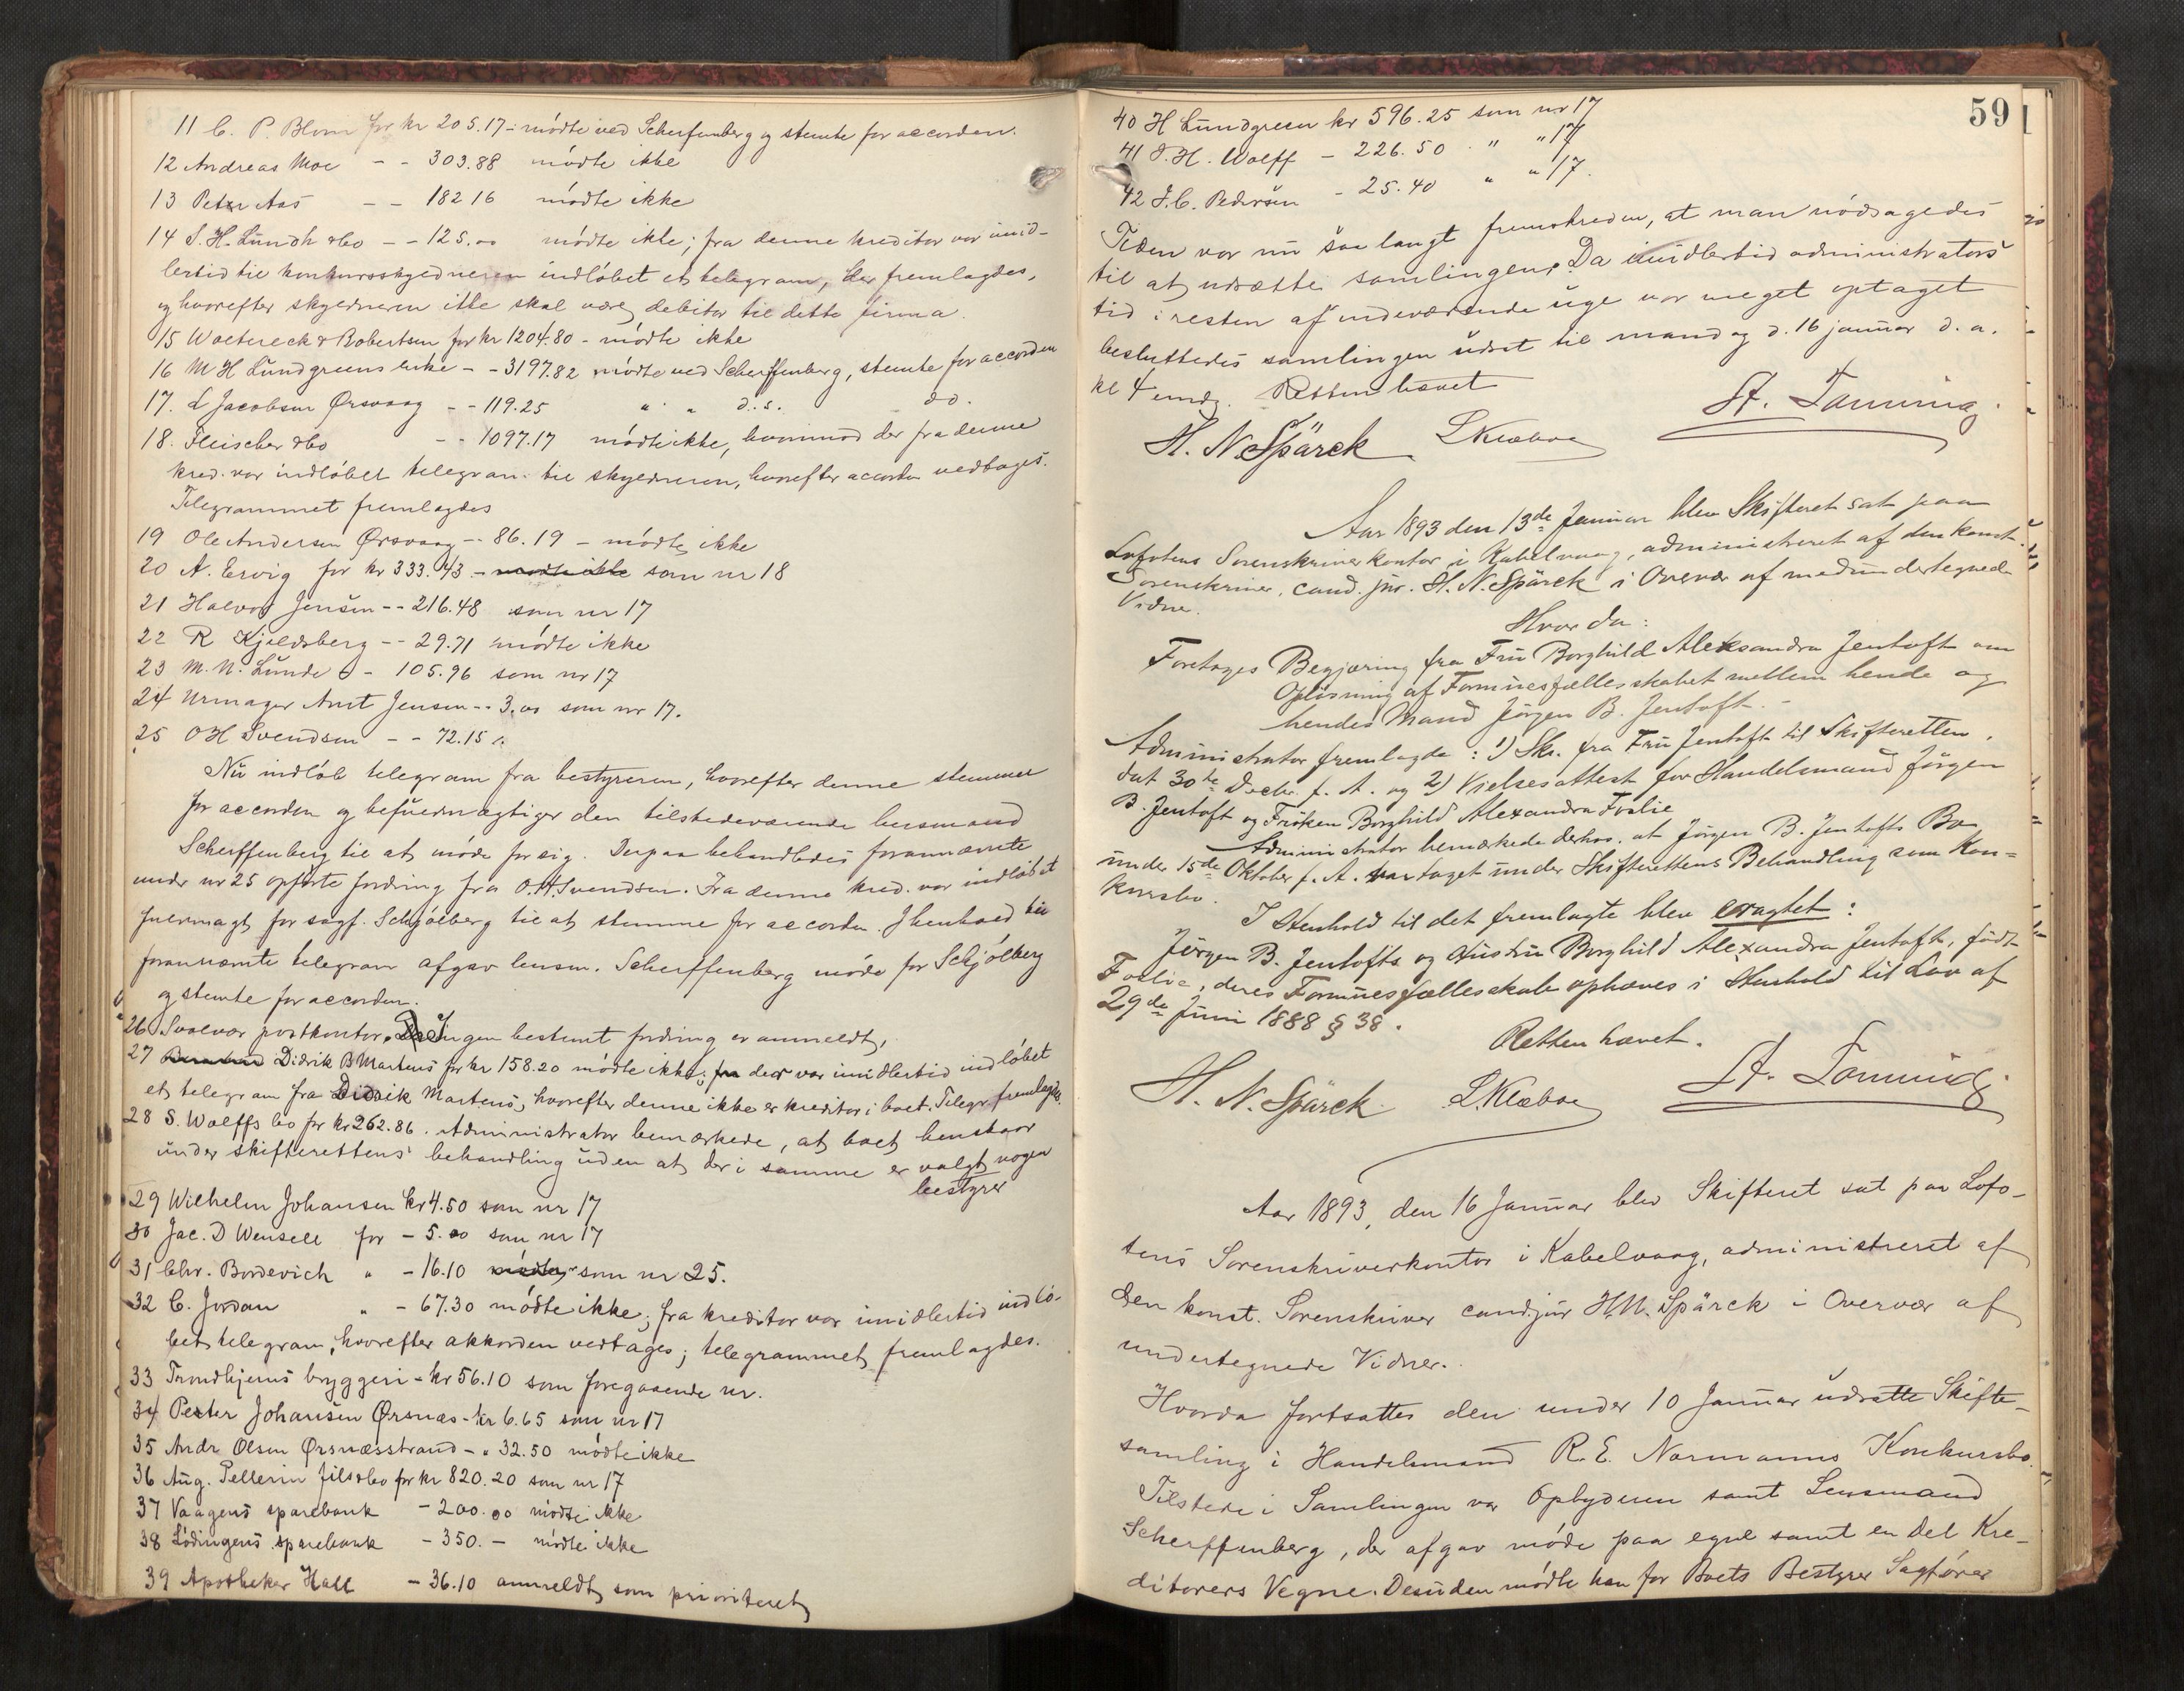 11 C. P. Blom for kr 205.17 - mödte ved Scherffenberg og stemte for accorden.
12 Andreas Moe - - 303.88 mödte ikke
13 Peter Aas - - 182 16 mödte ikke
14 S. H. Lundh & Co - - 125.00 mödte ikke; fra denne kreditor var imid-
lertid til konkursskyldneren indlöbet et telegram, der fremlagdes,
og hvorefter skyldneren ikke skal være debitor til dette firma.
15 Woetereck & Robertsen for kr 1204.80 - mödte ikke
16 M H Lundgreens enke - - 3197.82 mödte ved Scherffenberg, stemte for accorden
17. L Jacobsen Ørsvaag - - 119.25 " " d.s. do.
18. Fleischer & Co - - 1097.17 mödte ikke, hvorimod der fra denne
kred. var indlöbet telegram til skyldneren, hvorefter accorden vedtages.
Telegrammet fremlagdes
19 Ole Andersen Ørsvaag - - 86.19 - mödte ikke
20 A. Ervig for kr 333.43 - mödte ikke som nr 18
21 Halvor Jensen - - 216.48 som nr 17
22 R Kjeldsberg - - 29.71 mödte ikke
23 M. N. Lunde - 105.96 som nr 17
24 Urmager Arnt Jensen - - 3.00 som nr 17.
25 O H Svendsen - - 72.15
Nu indlöb telegram fra bestyreren, hvorefter denne stemmer
for accorden og befuldmægtiger den tilstedeværende lensmand
Scherffenberg til at möde for sig. Derpaa behandledes forannævnte
under nr 25 opförte fordring fra O. H. Svendsen. Fra denne kred. var indlöbet
fuldmagt for sagf. Schjölberg til at stemme for accorden. I henhold til
forannævnte telegram afgav lensm. Scherffenberg möde for Schjölberg
og stemte for accorden.
26 Svolvær postkontor. Ingen bestemt fordring er anmeldt.
27 Didrik B Martens for kr 158.20 mödte ikke; fra der var imidlertid indlöbet
et telegram fra Didrik Martens, hvorefter denne ikke er kreditor i boet. Telegr. fremlagdes.
28 S. Wolffs bo for kr 262.86. Administrator bemærkede, at boet henstaar
under skifterettens behandling uden at der i samme er valgt nogen
bestyrer
29 Wilhelm Johansen kr 4.50 som nr 17
30 Jac. D Wensell for - 5.00 som nr 17
31 Chr. Bordevich " - 16.10 mödte som nr 25.
32 C. Jordan " - 67.30 mödte ikke; fra kreditor var imidlertid indlö-
bet telegram, hvorefter akkorden vedtages; telegrammet fremlagdes.
33 Trondhjems bryggeri - kr 56.10 som foregaaende nr.
34 Peter Johansen Ørsnæs - kr 6.65 som nr 17
35 Andr Olsen Ørsnæsstrand - " 32.50 mödte ikke
36 Aug. Pellerin fils & Co for kr 820.20 som nr 17
37 Vaagens sparebank - 200.00 mödte ikke
38 Lödingens sparebank - 350. - mödte ikke
39 Apotheker Hall - 36.10 anmeldt som prioriteret
59
40 H Lundgreen kr 596.25 som nr 17
41 J. H. Wolff - 226.50 " " 17
42 J. C. Pedersen - 25.40 " " 17.
Tiden var nu saa langt fremskreden, at man nödsagedes
til at udsætte samlingen. Da imidlertid administrators
tid i resten af indeværende uge var meget optaget
besluttedes samlingen udsat til mandag d. 16 januar d. a.
kl 4 emdg. Retten hævet
H. N. Spärck L Klæboe St. Tønning
Aar 1893 den 13de Januar blev Skifteret sat paa
Lofotens Sorenskriverkontor i Kabelvaag, administreret af den konst.
Sorenskriver, cand. jur. H. N. Spärck i Overvær af medundertegnede
Vidner.
Hvorda:
Foretages Begjæring fra Fru Borghild Aleksandra Jentoft om
Oplösning af Formuesfællesskabet mellem hende og
hendes Mand Jörgen B. Jentoft. -
Administrator fremlagde: 1) Skr. fra Fru Jentoft til Skifteretten,
dat 30te Decbr. f. A. og 2) Vielsesattest for Handelsmand Jörgen
B. Jentoft og Fröken Borghild Alexandra Foslie
Administrator bemærkede derhos, at Jörgen B. Jentofts Bo
under 15de Oktober f. A. var taget under Skifterettens Behandling som Kon-
kursbo.
I Henhold til det fremlagte blev eragtet:
Jörgen B. Jentofts og Hustru Borghild Alexandra Jentoft, födt
Foslie, deres Formuesfællesskab ophæves i Henhold til Lov af
29de Juni 1888 § 38.
Retten hævet.
H. N. Spärck L. Klæboe St. Tønning
Aar 1893, den 16 Januar blev Skifteret sat paa Lofo-
tens Sorenskriverkontor i Kabelvaag, administreret af
den konst. Sorenskriver cand jur H. N. Spärck i Overvær af
undertegnede Vidner.
Hvorda fortsattes den under 10 Januar udsatte Skifte-
samling i Handelsmand R. E. Normanns Konkursbo.
Tilstede i Samlingen var Opbyderen samt Lensmand
Scherffenberg, der afgav möde paa egne samt en Del Kre-
ditorers Vegne. Desuden mödte han for Boets Bestyrer Sagförer